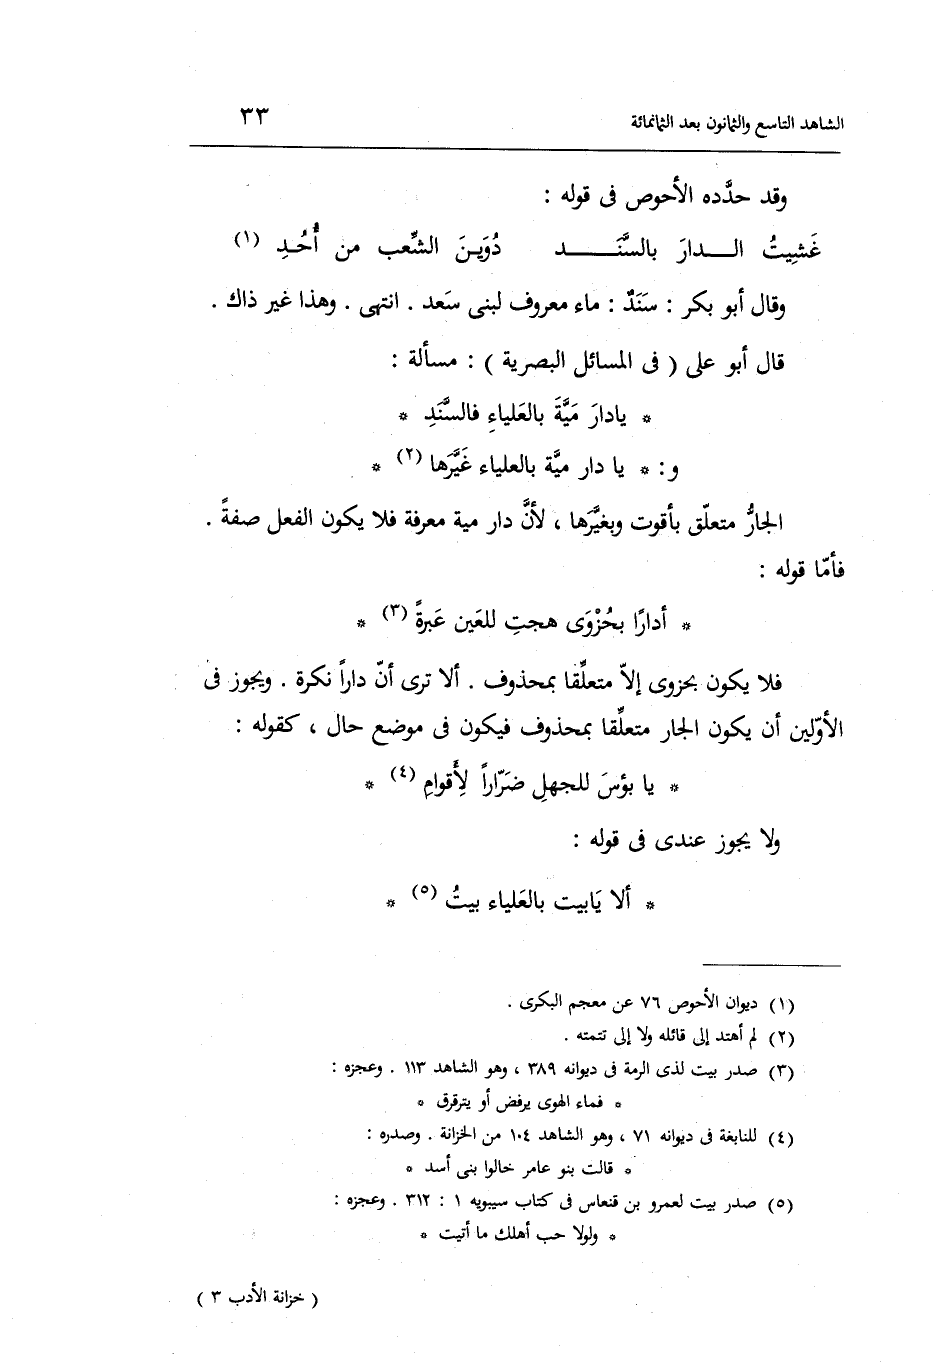 الشاهد التاسع والثمانون بعد الثمانمائة ٣٣
وقد حدَّده الأحوص فى قوله :
غَشِيتُ الـــدارَ بالسَّنَــــــد دُوَيـنَ الشِّعب من أُحُـدِ (١)
وقال أبو بكر : سَنَدٌ : ماء معروف لبنى سَعد . انتهى . وهذا غير ذاك .
قال أبو على ( فى المسائل البصرية ) : مسألة :
* يادارَ مَيَّةَ بالعَلياءِ فالسَّنَدِ *
و : * يا دار ميَّة بالعلياء غَيَّرَها (٢) *
الجارُّ متعلّق بأقوت وبغيَّرَها ، لأنَّ دار مية معرفة فلا يكون الفعل صفةً .
فأمّا قوله :
* أدارًا بحُزْوَى هجتِ للعَين عَبرةً (٣) *
فلا يكون بحزوى إلاّ متعلِّقا بمحذوف . ألا ترى أنّ داراً نكرة . ويجوز فى
الأوّلين أن يكون الجار متعلِّقا بمحذوف فيكون فى موضع حال ، كقوله :
* يا بؤسَ للجهلِ ضَرّاراً لِأَقوامِ (٤) *
ولا يجوز عندى فى قوله :
* ألا يَابيت بالعَلياء بيتُ (٥) *
(١) ديوان الأحوص ٧٦ عن معجم البكرى .
(٢) لم أهتد إلى قائله ولا إلى تتمته .
(٣) صدر بيت لذى الرمة فى ديوانه ٣٨٩ ، وهو الشاهد ١١٣ . وعجزه :
* فماء الهوى يرفض أو يترقرق *
(٤) للنابغة فى ديوانه ٧١ ، وهو الشاهد ١٠٤ من الخزانة . وصدره :
* قالت بنو عامر خالوا بنى أسد *
(٥) صدر بيت لعمرو بن قنعاس فى كتاب سيبويه ١ : ٣١٢ . وعجزه :
* ولولا حب أهلك ما أتيت *
( خزانة الأدب ٣ )